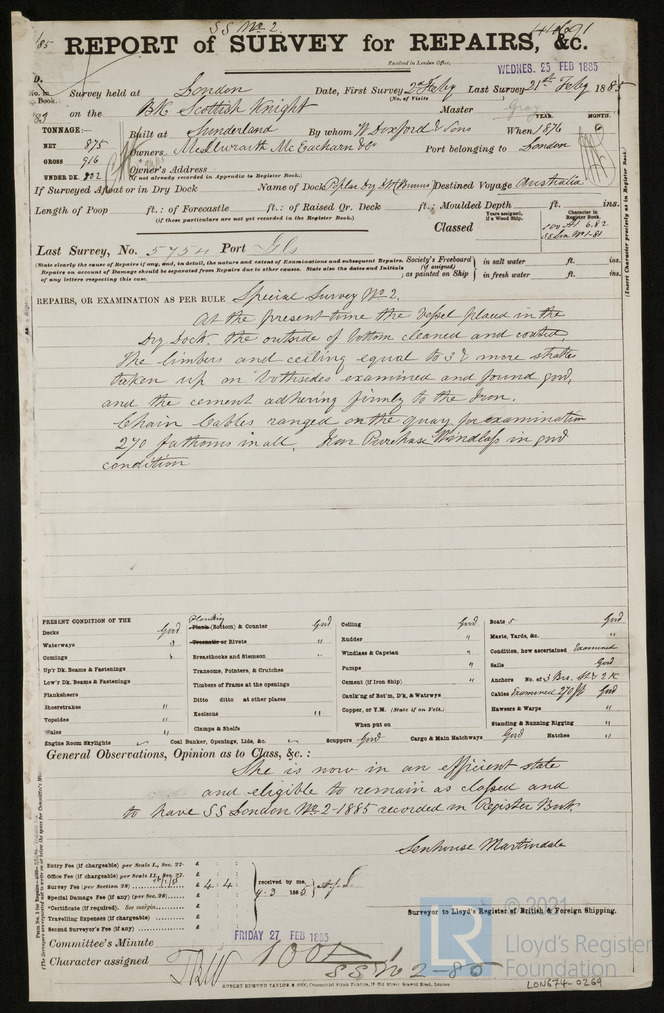 SS No 2.
REPORT of SURVEY for REPAIRS, &c.
Received in London Office,
WEDNES. 25 FEB 1885
No. in Book.
Survey held at London Date, First Survey 2d Feby Last Survey 21st Feby 1885
(No. of Visits
on the Bk Scottish Knight Master Gray
TONNAGE:—
YEAR. MONTH.
Built at Sunderland By whom W Doxford & Sons When 1876
NET 875
GROSS 916
UNDER DK.
Owners McIlwraith McEacharn & Co Port belonging to London
Owner's Address
(if not already recorded in Appendix to Register Book.)
If Surveyed Afloat or in Dry Dock Name of Dock Poplar Dry Destined Voyage Australia
Length of Poop ft.; of Forecastle ft.; of Raised Qr. Deck ft.; Moulded Depth ft. ins.
(if these particulars are not yet recorded in the Register Book.)
Years assigned, if a Wood Ship.
Character in Register Book.
Classed 100 A1 6.82
SS Lon No 1-81
(Insert Character precisely as in Register Book.)
Last Survey, No. 5754 Port Gls
(State clearly the cause of Repairs if any, and, in detail, the nature and extent of Examinations and subsequent Repairs.
Repairs on account of Damage should be separated from Repairs due to other causes. State also the dates and Initials
of any letters respecting this case.
Society's Freeboard (if assigned) as painted on Ship
in salt water ft. ins.
in fresh water ft. ins.
REPAIRS, OR EXAMINATION AS PER RULE Special Survey No 2.
At the present time the Vessel placed in the
Dry Dock, the outside of bottom cleaned and coated,
The limbers and ceiling equal to 3 & more strakes
taken up on bothsides examined and found good,
and the cement adhering firmly to the Iron.
Chain Cables ranged on the quay for examination
270 fathoms in all. Iron Purchase Windlass in good
condition
PRESENT CONDITION OF THE
Decks Good
Waterways "
Comings "
Up'r Dk. Beams & Fastenings
Low'r Dk. Beams & Fastenings
Planksheers
Sheerstrakes "
Topsides "
Wales "
Engine Room Skylights
Planking
Plank (Bottom) & Counter Good
Treenails or Rivets "
Breasthooks and Stemson "
Transoms, Pointers, & Crutches
Timbers of Frame at the openings
Ditto ditto at other places
Keelsons "
Clamps & Shelfs
Coal Bunker, Openings, Lids, &c.
Ceiling Good
Rudder "
Windlass & Capstan "
Pumps "
Cement (if Iron Ship) "
Caulk'ng of Bot'm, D'k, & Watrwys
Copper, or Y.M. (State if on Felt.)
When put on
Scuppers Good Cargo & Main Hatchways Good Hatches "
Boats 5 Good
Masts, Yards, &c. "
Condition, how ascertained Examined
Sails Good
Anchors No. of 3 Brs, St & 2 K
Cables Examined 270 ft Good
Hawsers & Warps "
Standing & Running Rigging "
General Observations, Opinion as to Class, &c.:
She is now in an efficient state
and eligible to remain as classed and
to have SS London No 2-1885 recorded in Register Book
Senhouse Martindale
Surveyor to Lloyd's Register of British & Foreign Shipping.
Entry Fee (if chargeable) per Scale I., Sec. 27.
Office Fee (if chargeable) per Scale II., Sec. 27.
Survey Fee (per Section 28) £ 4 4
Special Damage Fee (if any) (per Sec. 28) £
*Certificate (if required). See margin. £
Travelling Expenses (if chargeable) £
Second Surveyor's Fee (if any) £
received by me,
9.3 1885
Committee's Minute FRIDAY 27 FEB 1885
Character assigned 100A1
SS No 2-85
ROBERT EDMUND TAYLOR & SON, London.
LON674-0269
© 2021
LR
Lloyd's Register
Foundation